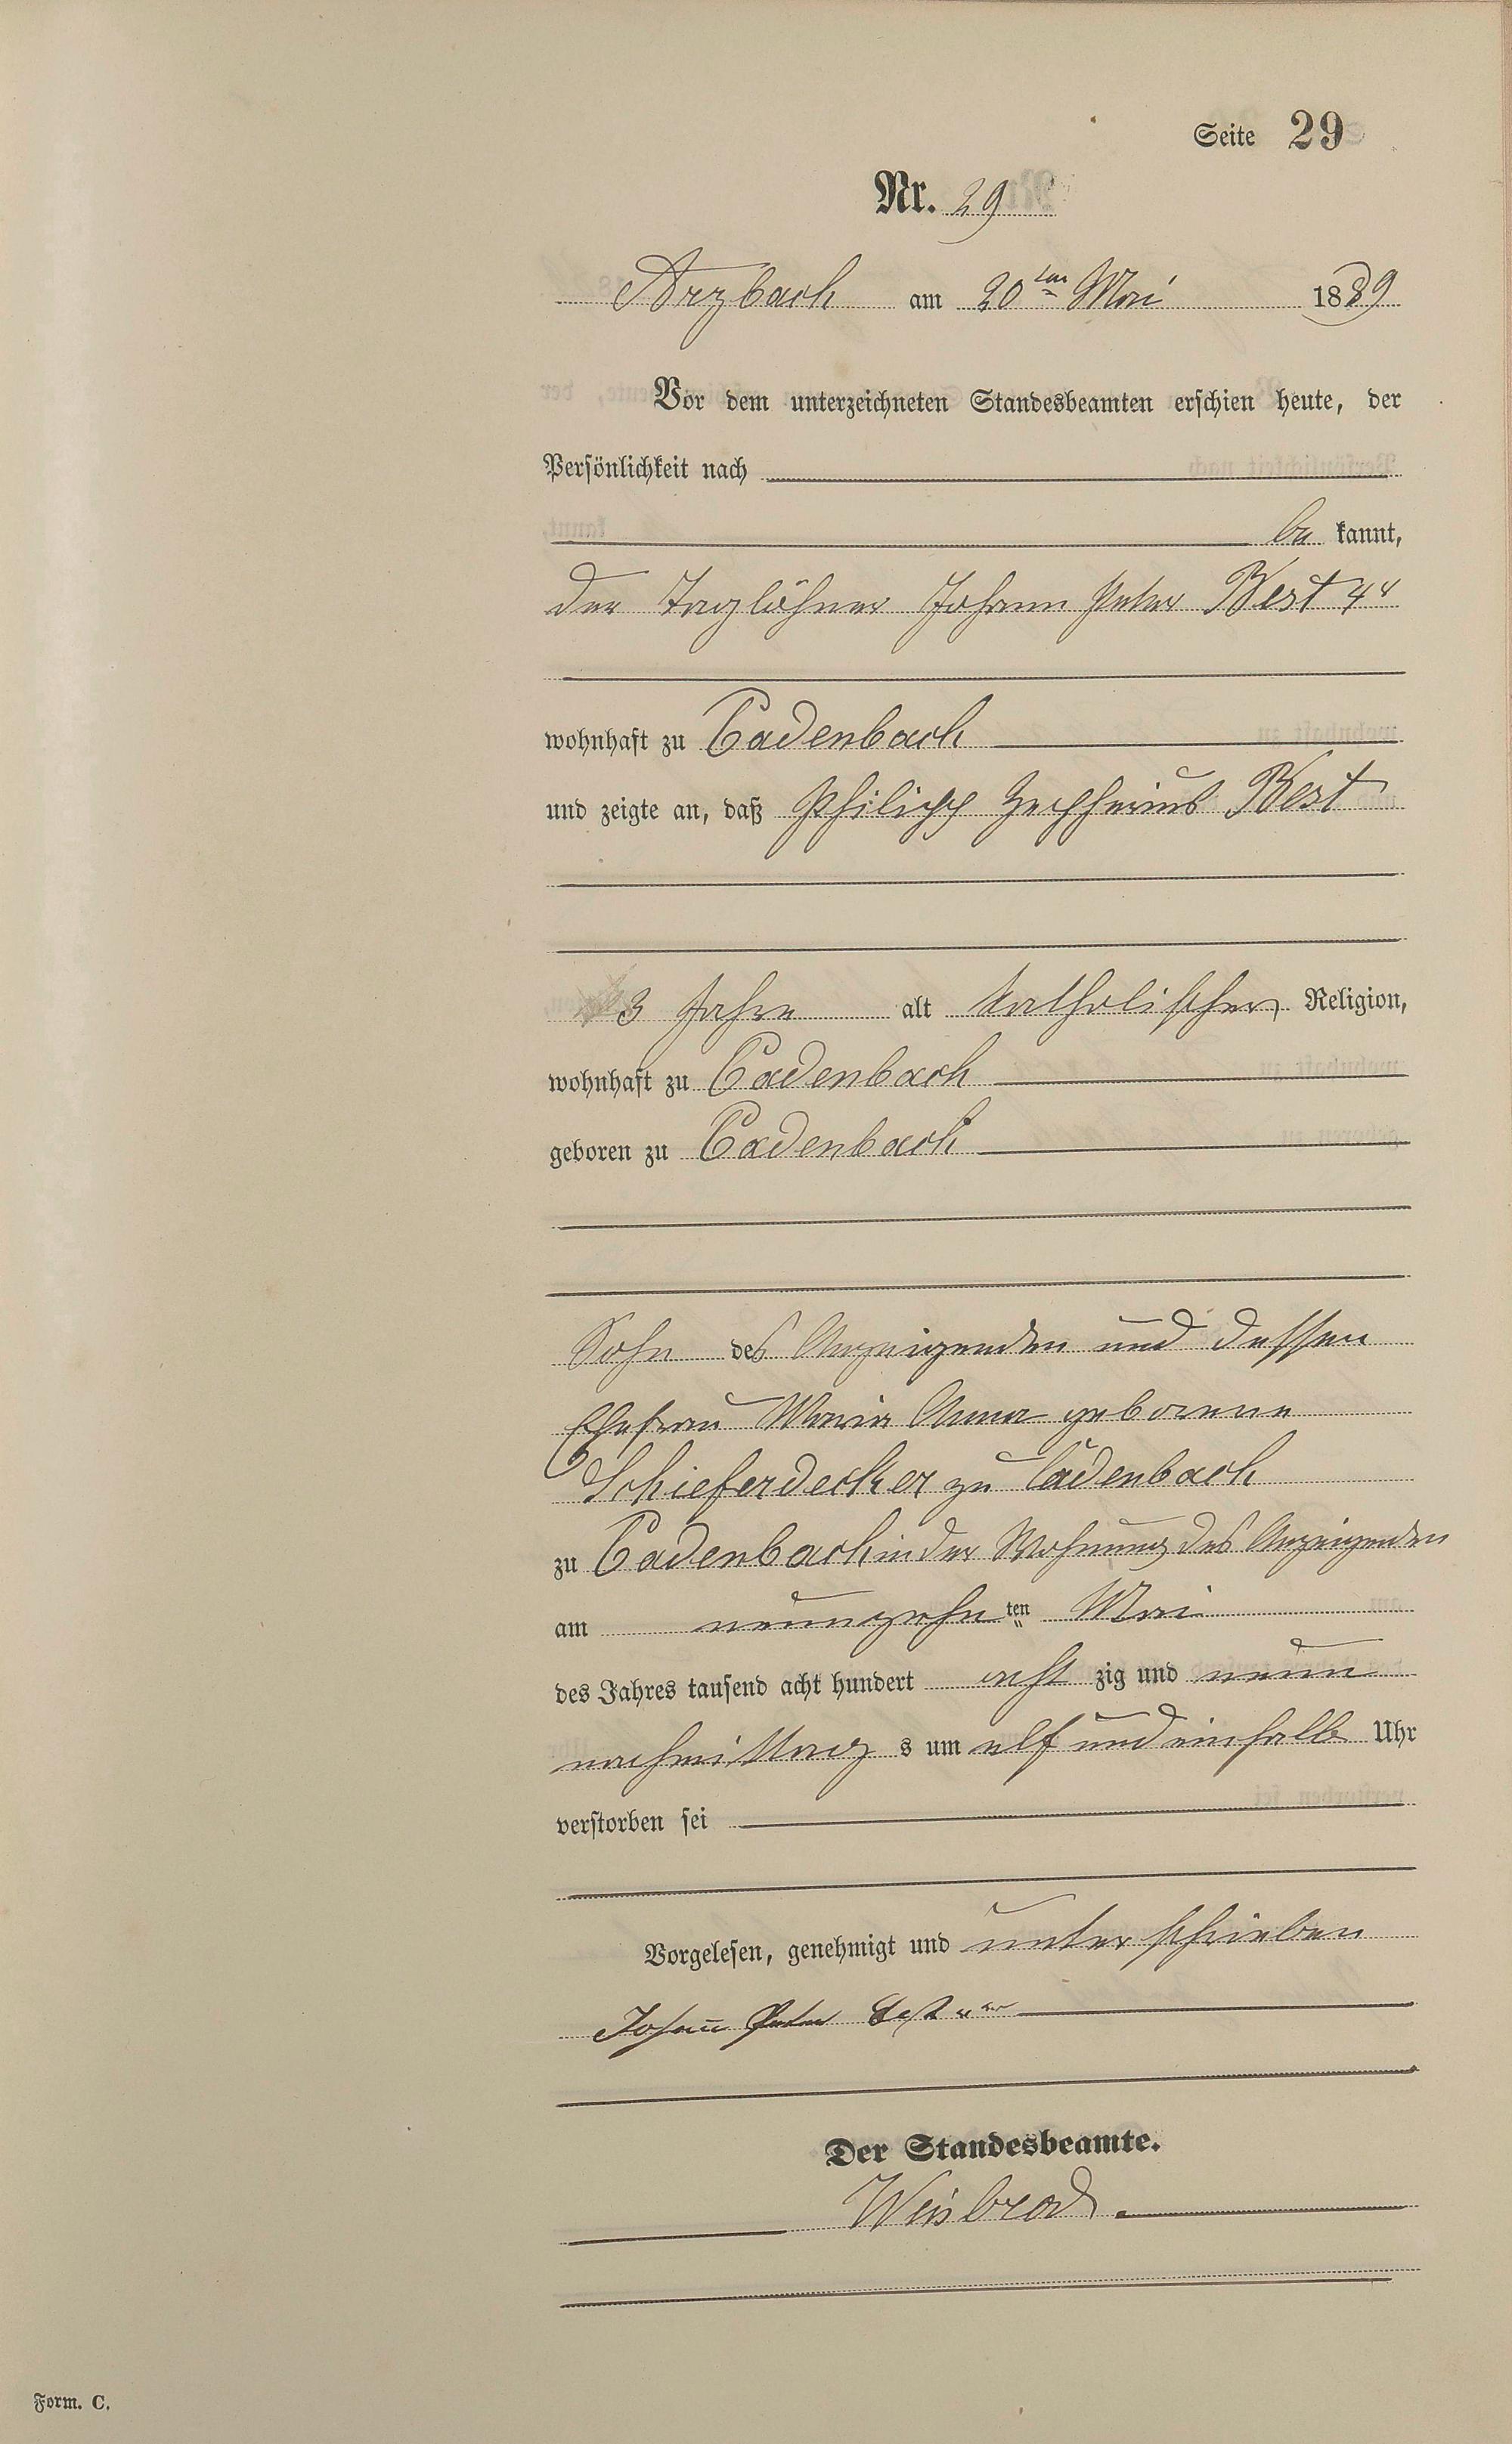 Seite 29
Nr. 29
Arzbach am 20ten Mai 1889
Vor dem unterzeichneten Standesbeamten erschien heute, der
Persönlichkeit nach
be kannt,
der Taglöhner Johann Peter Best 4r
wohnhaft zu Cadenbach
und zeigte an, daß Philipp Zephyrius Best
3 Jahre alt katholischer Religion,
wohnhaft zu Cadenbach
geboren zu Cadenbach
Sohn des Anzeigenden und dessen
Ehefrau Maria Anna geborene
Schieferdecker zu Cadenbach
zu Cadenbach in der Wohnung des Anzeigenden
am neunzehn ten Mai
des Jahres tausend acht hundert acht zig und neun
nachmittag s um elf und einhalb Uhr
verstorben sei
Vorgelesen, genehmigt und unterschrieben
Johann Peter Best
Der Standesbeamte.
Weisbrod.
Form. C.